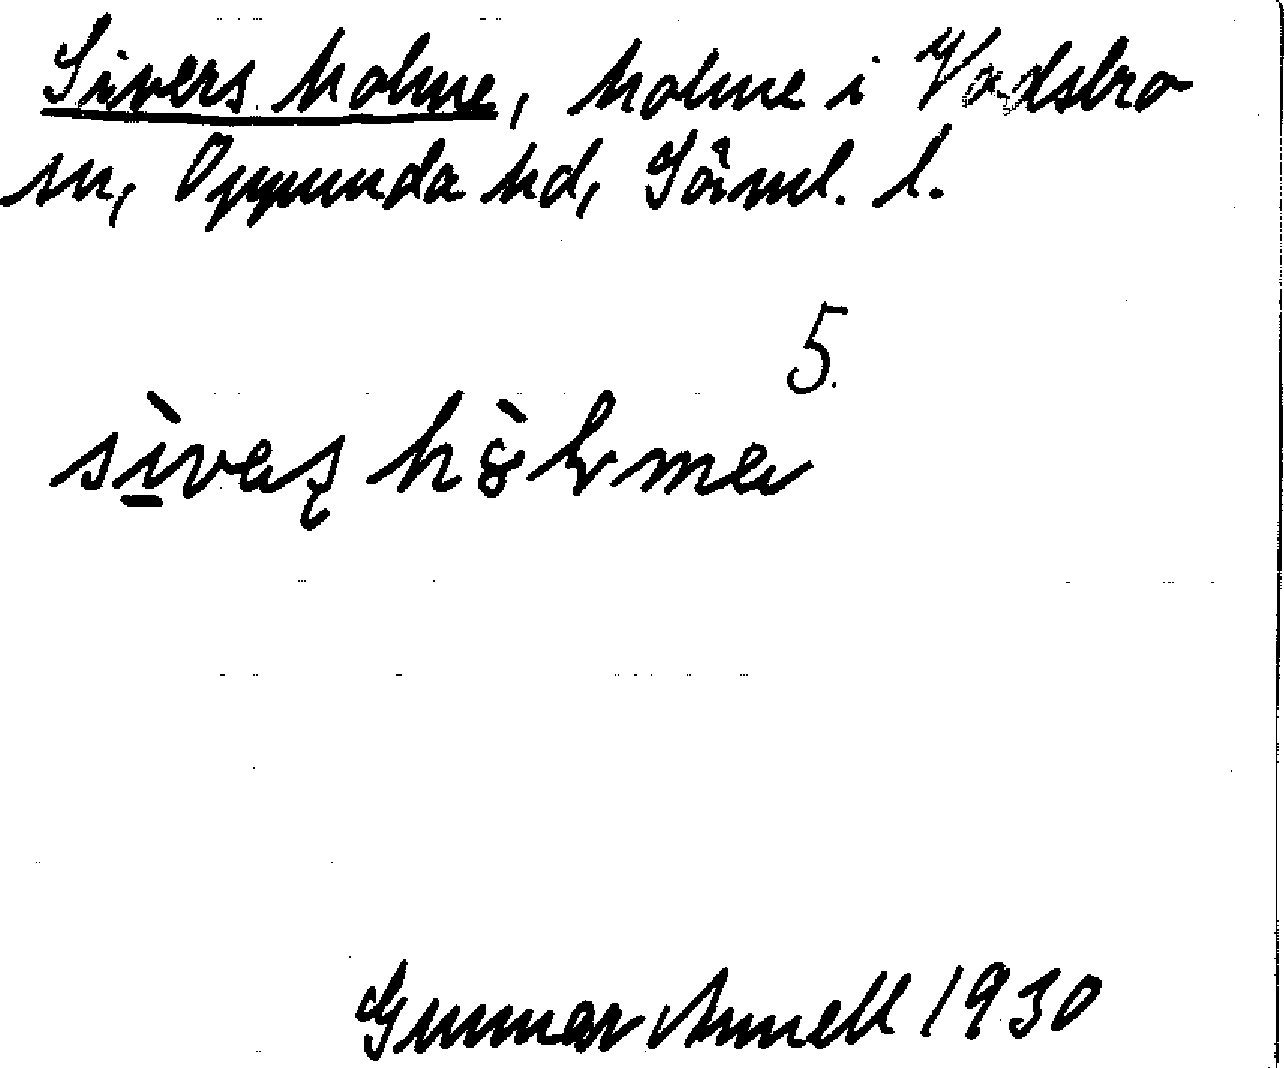 Sivers holme, holme i Vadsbro
sn, Oppunda hd, Söml. l.
5.
Gunnar Annell 1930